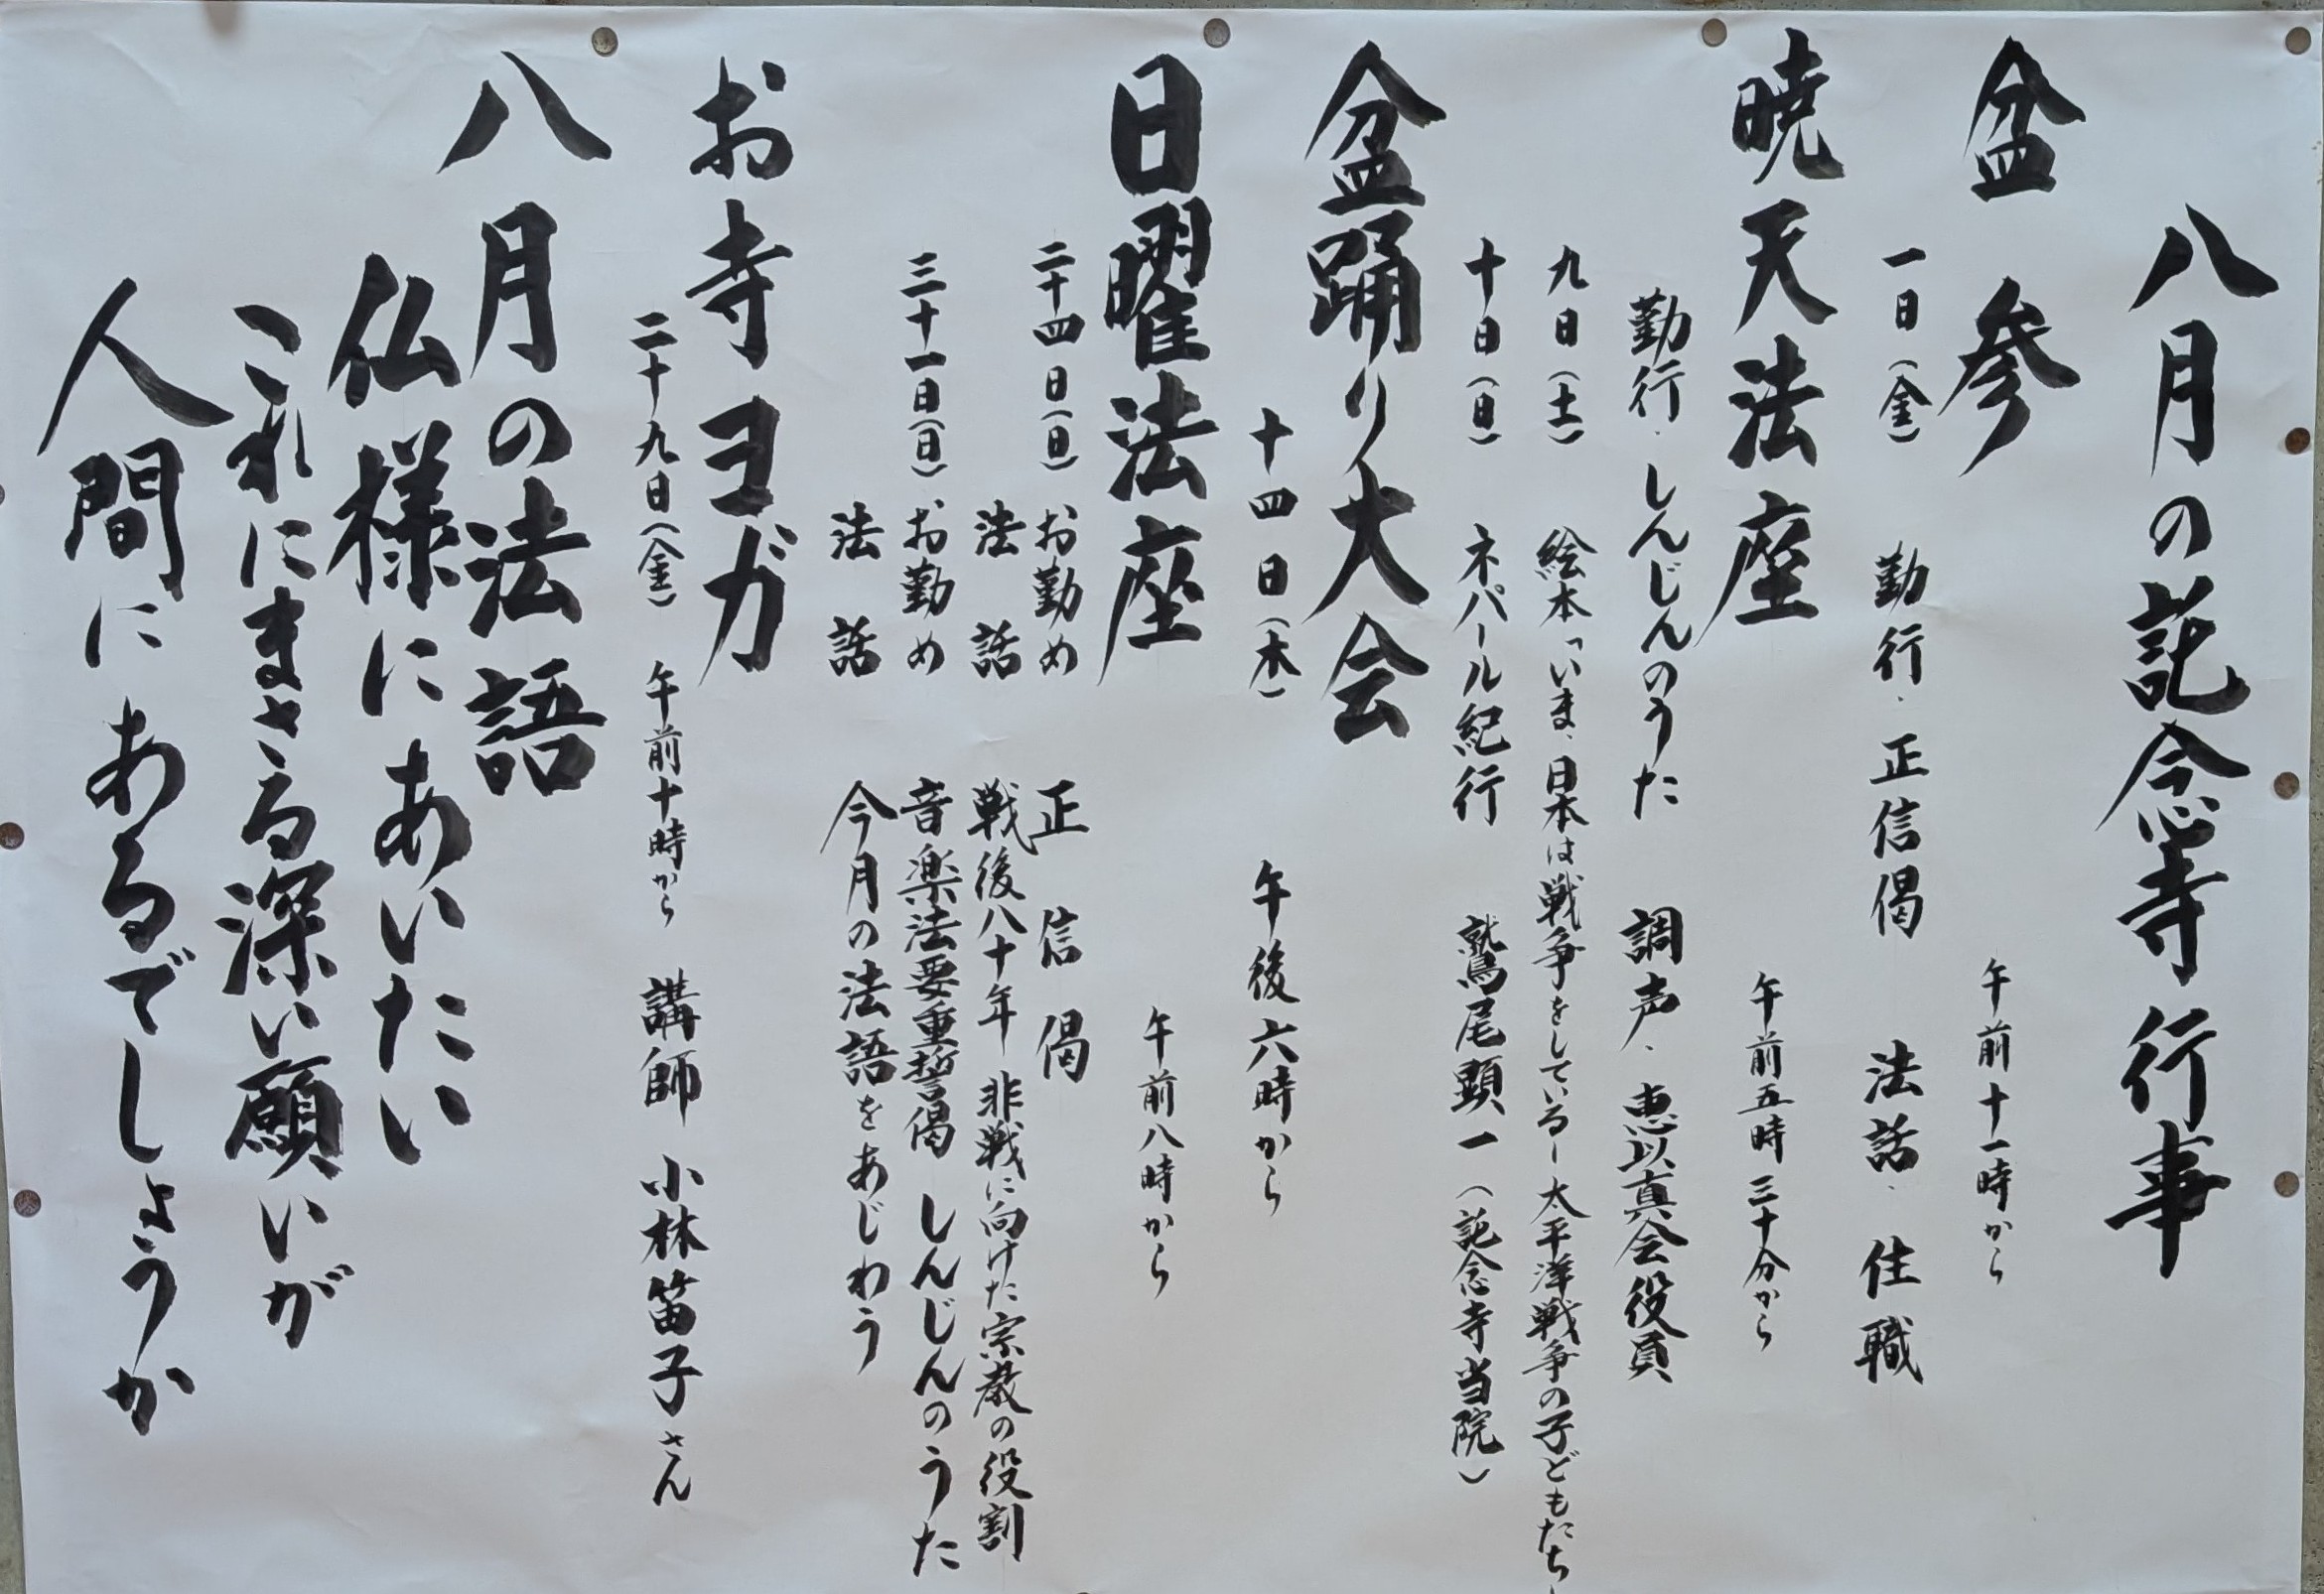 八月の記念寺行事
盆参
午前十一時から
一日（金）　勤行・正信偈　法話・住職
暁天法座
午前五時三十分から
勤行・しんじんのうた　調声・恵以真会役員
九日（土）　絵本「いま、日本は戦争をしているー太平洋戦争の子どもたち」
十日（日）　ネパール紀行　鷲尾顕一（記念寺当院）
盆踊り大会
十四日（木）　午後六時から
日曜法座
午前八時から
二十四日（日）お勤め　正信偈
法話　戦後八十年　非戦に向けた宗教の役割
三十一日（日）お勤め　音楽法要重誓偈　しんじんのうた
法話　今月の法語をあじわう
お寺ヨガ
二十九日（金）　午前十時から　講師　小林笛子さん
八月の法語
仏様にあいたい
これにまさる深い願いが
人間にあるでしょうか